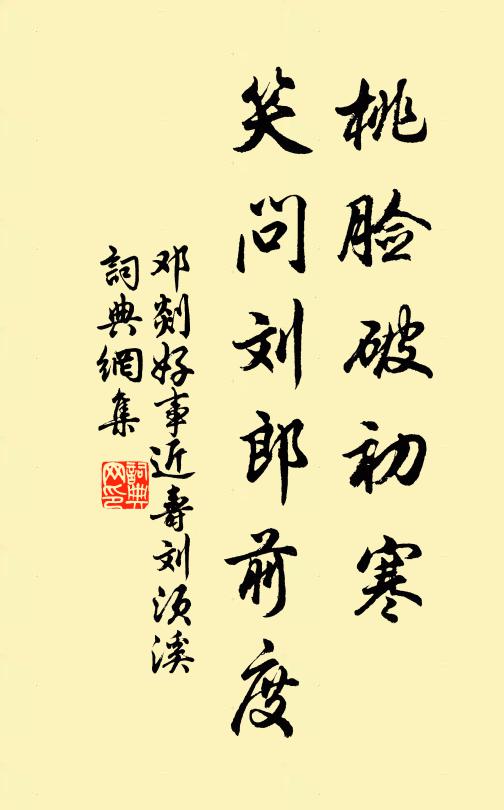 桃脸破初寒
笑问刘郎前度
邓剡好事近壽刘须溪
詞典網集
詞典网印